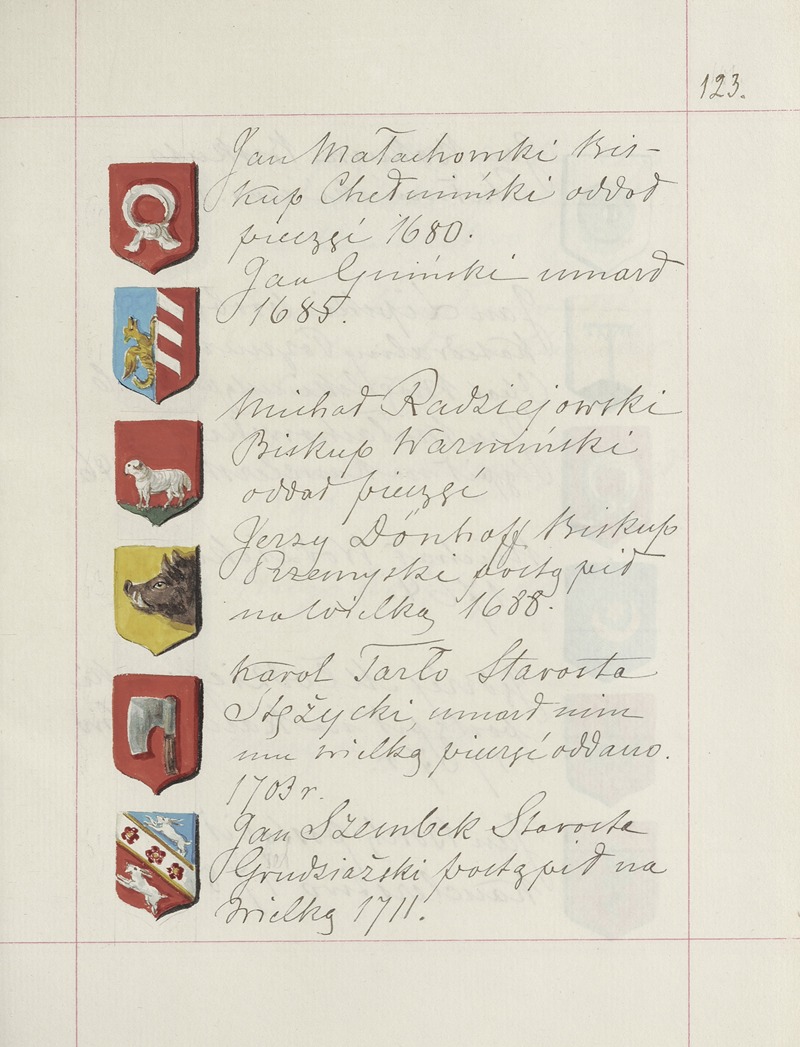 123.
Jan Małachowski Bis-
kup Chełmiński oddał
pieczęć 1680.
Jan Gniński umarł
1685.
Michał Radziejowski
Biskup Warmiński
oddał pieczęć
Jerzy Dönhoff Biskup
Przemyski postąpił
na Wielką 1688.
Karol Tarło Starosta
Stężycki, umarł nim
mu wielką pieczęć oddano.
1703 r.
Jan Szembek Starosta
Grudziąźski postąpił na
Wielką 1711.